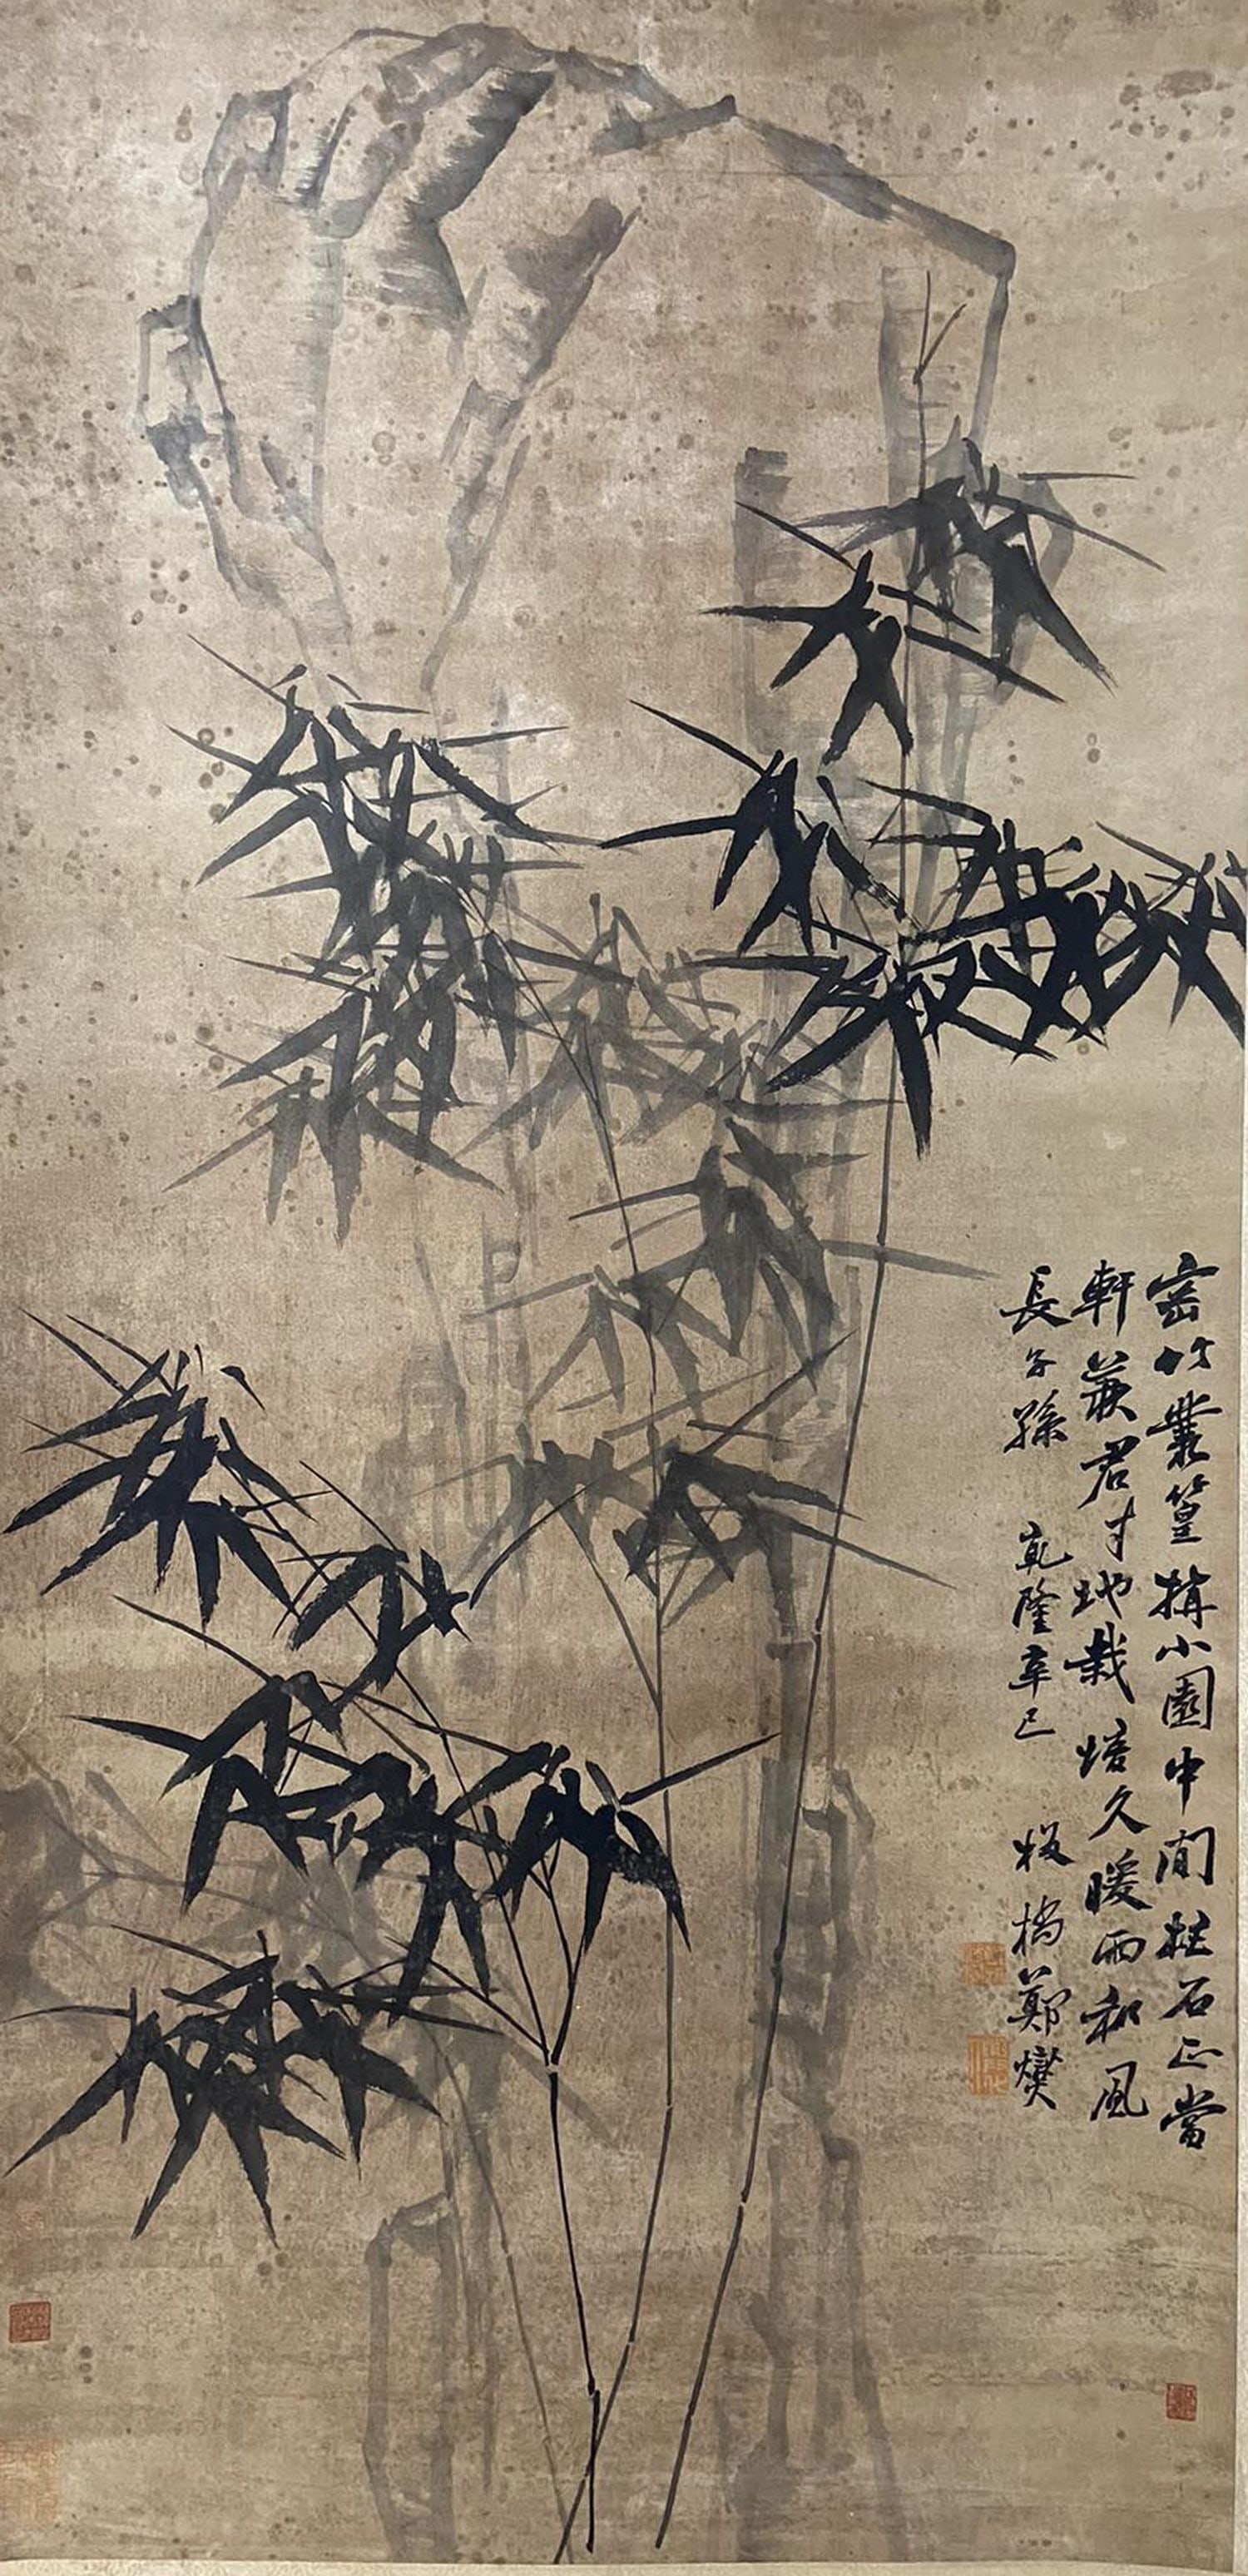 密竹叢篁構小園中間柱石正當
軒蒙君寸地栽培久暖雨和風
長子孫 乾隆辛巳 板橋鄭燮